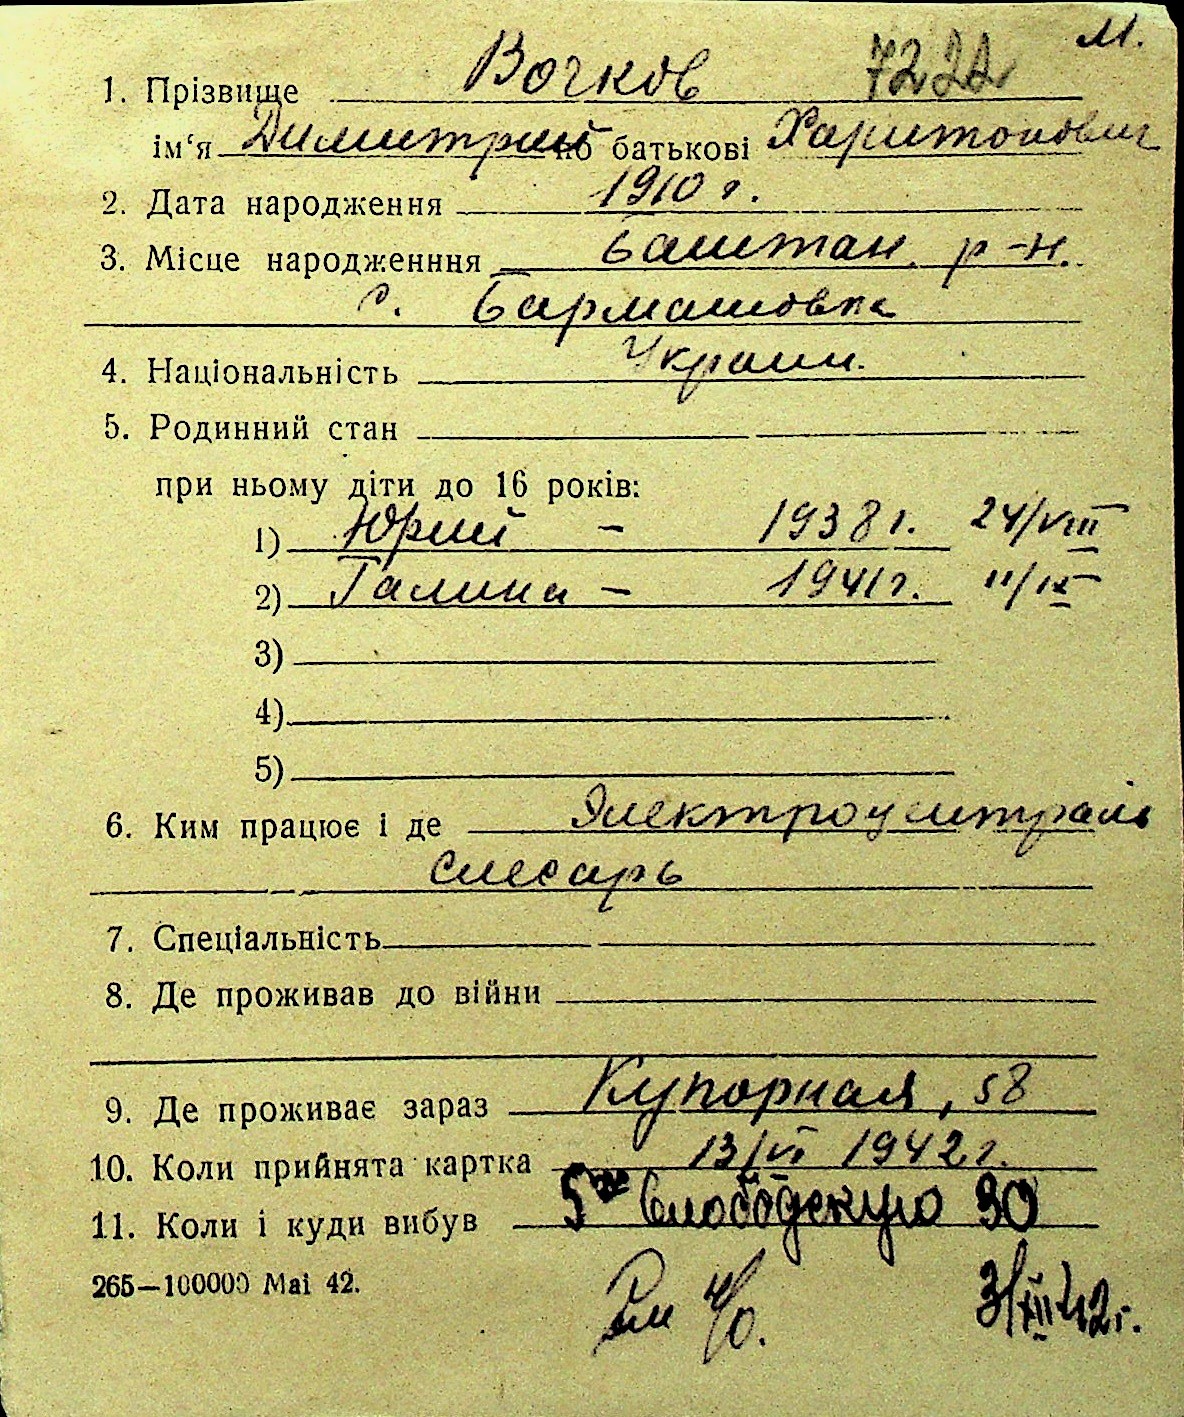 М.
1. Прізвище Вочков 7222
ім‘я Димитрий по батькові Харитонович
2. Дата народження 1910 г.
3. Місце народженння Баштан. р-н.
с. Бармашовка
4. Національність Украин.
5. Родинний стан
при ньому діти до 16 років:
1) Юрий - 1938 г. 24/VIII
2) Галина - 1941 г. 11/IX
3)
4)
5)
6. Ким працює і де Электроцентраль
слесарь
7. Спеціальність
8. Де проживав до війни
9. Де проживає зараз Купорная, 58
10. Коли прийнята картка 13/VI 1942 г.
11. Коли і куди вибув 5ую Слободскую 90
265—100000 Mai 42.
3/XII 42 г.